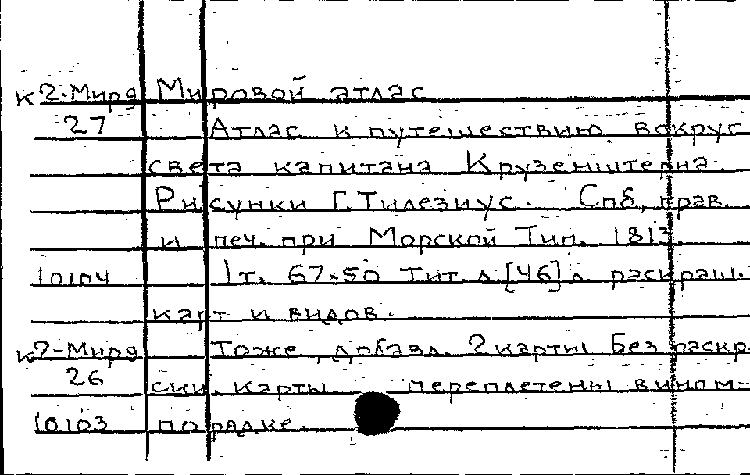 К2-Миря Мировой атлас
27 Атлас к путешествию вокруг
света капитана Крузенштерна
Рисунки Г. Тилезиус. Спб, грав.
и печ. при Морской Тип. 1813.
10104 1т. 67×50 Тит. л [46] л раскраш.
карт и видов.
К2-Миря Тоже, добавл. 2 карты Без раскр-
26 ски. карты переплетены в ином-
10103 порядке.